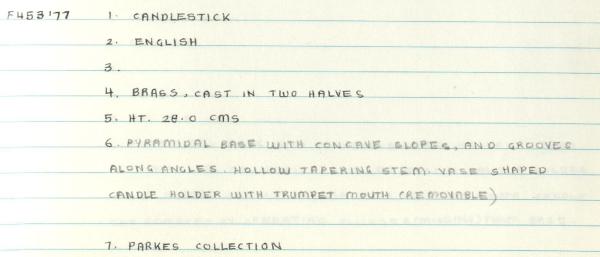 F453'77 1. CANDLESTICK
2. ENGLISH
3.
4. BRASS, CAST IN TWO HALVES
5. HT. 28.0 CMS
6. PYRAMIDAL BASE WITH CONCAVE SLOPES, AND GROOVES
ALONG ANGLES. HOLLOW TAPERING STEM. VASE SHAPED
CANDLE HOLDER WITH TRUMPET MOUTH (REMOVABLE)
7. PARKES COLLECTION